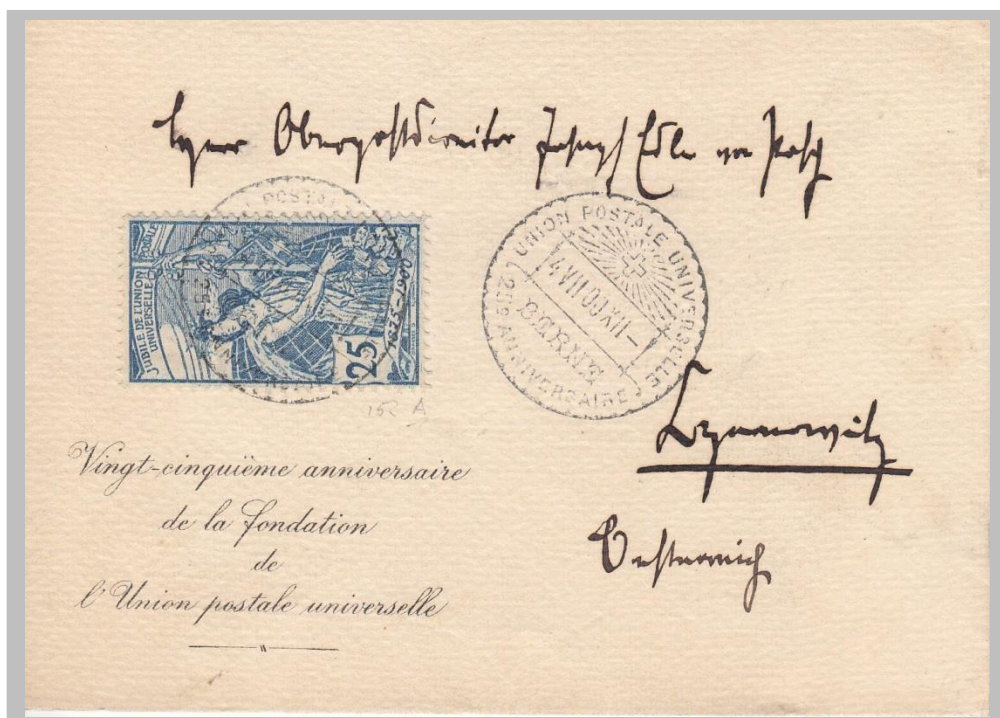 Herrn Oberpostdirector Joseph von
JUBILÉ DE L'UNION POSTALE
UNIVERSELLE
1875-1900
25
UNION POSTALE UNIVERSELLE
4 VII 00 XII-
BERNE
25e ANNIVERSAIRE
Czernowitz
Oesterreich
Vingt-cinquième anniversaire
de la fondation
de
l'Union postale universelle